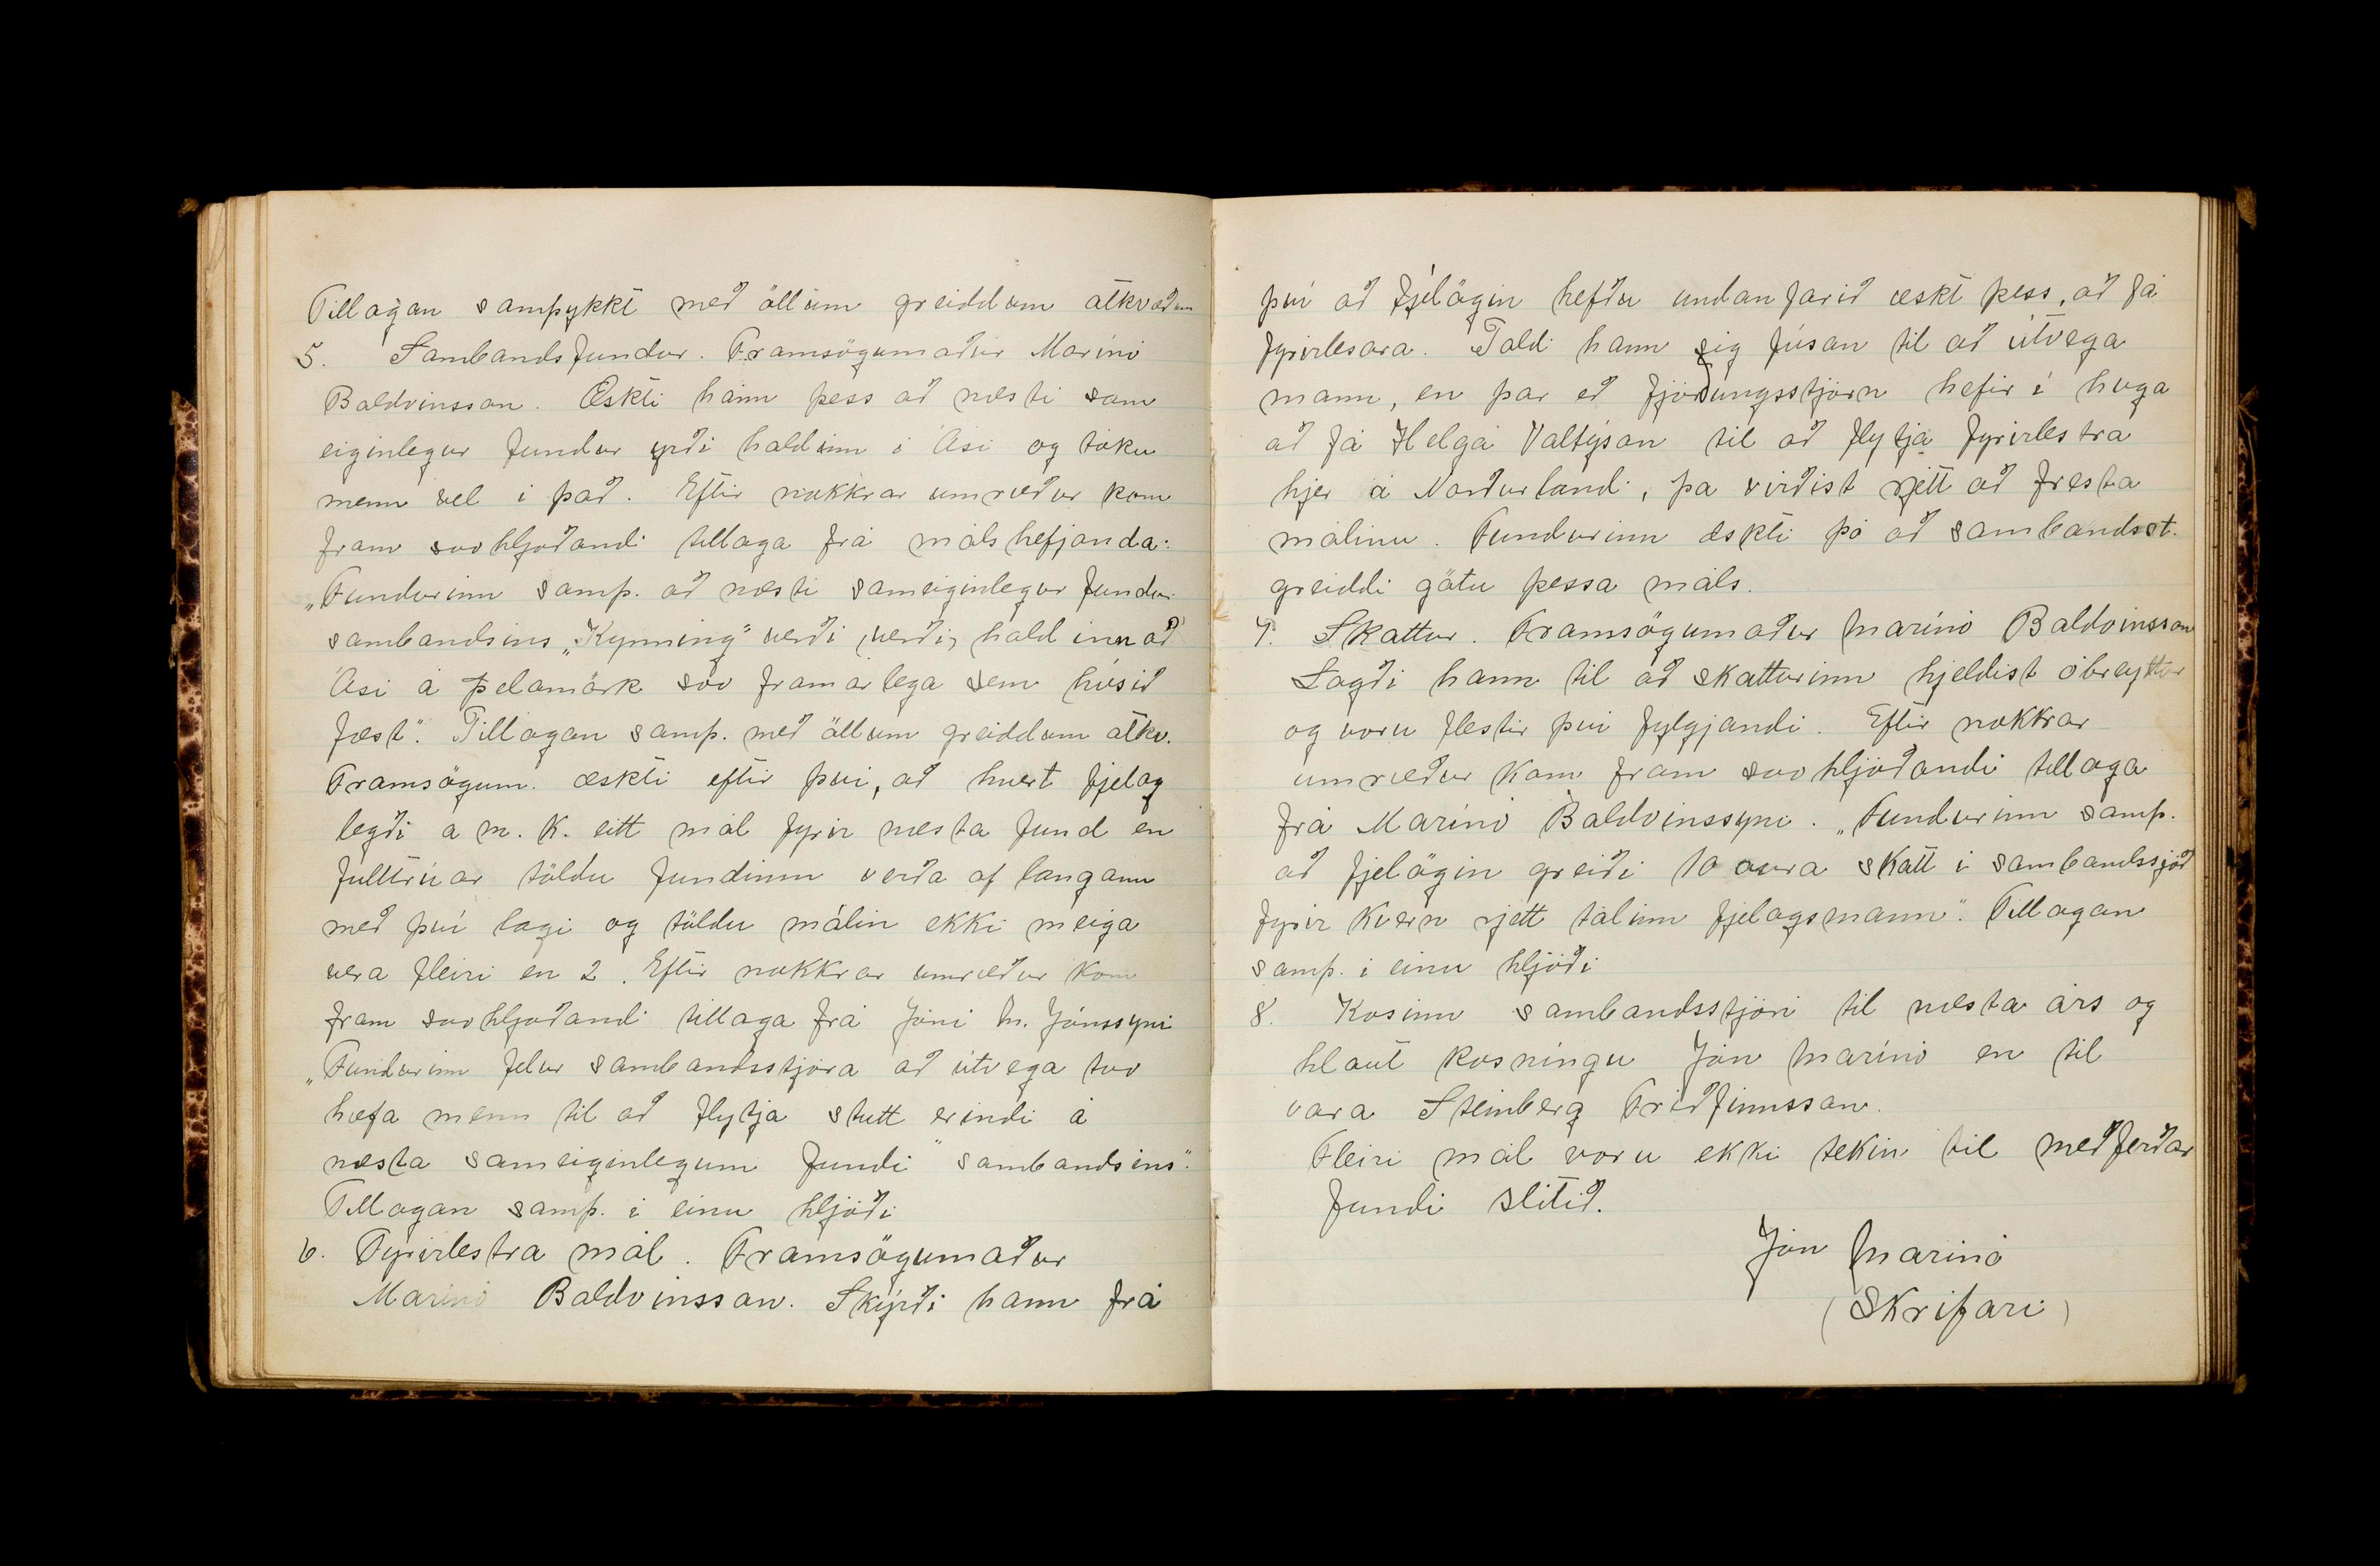 Tillagan samþykkt með öllum greiddum atkvæðum
5. Sambandsfundur. Framsögumaður Marínó
Baldvinsson. Æskti hann þess að næsti sam
eiginlegur fundur yrði haldinn í Ási og tóku
menn vel í það. Eftir nokkrar umræður kom
fram svohljóðandi tillaga frá málshefjanda:
„Fundurinn samþ. að næsti sameiginlegur fundur
sambandsins „Kynning" verði (verði) haldinn að
Ási á Þelamörk svo framarlega sem húsið
fæst". Tillagan samþ. með öllum greiddum atkv.
Framsögum. æskti eftir því, að hvert fjelag
legði a m. k. eitt mál fyrir næsta fund en
fulltrúar töldu fundinn verða of langann
með því lagi og töldu málin ekki meiga
vera fleiri en 2. Eftir nokkrar umræður kom
fram svohljóðandi tillaga frá Jóni M. Jónssyni
„Fundurinn felur sambandsstjóra að útvega tvo
hæfa menn til að flytja stutt erindi á
næsta sameiginlegum fundi sambandsins".
Tillagan samþ. í einu hljóði
6. Fyrirlestra mál. Framsögumaður
Marínó Baldvinsson. Skýrði hann frá
því að fjelögin hefðu undanfarið æskt þess, að fá
fyrirlesara. Taldi hann sig fúsan til að útvega
mann, en þar eð fjórðungsstjórn hefir í huga
að fá Helga Valtýson til að flytja fyrirlestra
hjer á Norðurlandi, þa virðist rjett að fresta
málinu. Fundurinn æskti þó að sambandsst.
greiddi götu þessa máls.
7. Skattur. Framsögumaður Marínó Baldvinsson
Lagði hann til að skatturinn hjeldist óbreyttur
og voru flestir því fylgjandi. Eftir nokkrar
umræður kom fram svohljóðandi tillaga
frá Marínó Baldvinssyni. „Fundurinn samþ.
að fjelögin greiði 10 aura skatt í sambandssjóð
fyrir kvern rjett talinn fjelagsmann". Tillagan
samþ. í einu hljóði
8. Kosinn sambandsstjóri til næsta árs og
hlaut kosningu Jón Marínó en til
vara Steinberg Friðfinnsson.
Fleiri mál voru ekki tekin til meðferðar
fundi slitið.
Jón Marinó
(Skrifari)